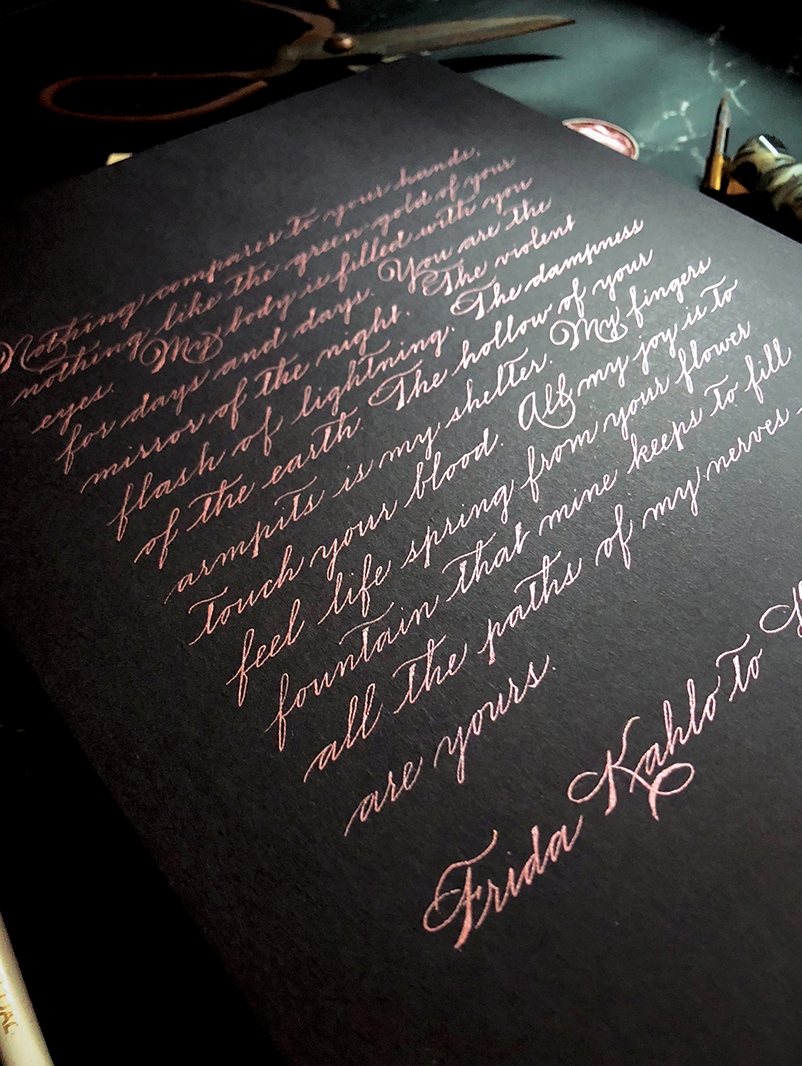 Nothing compares to your hands,
nothing like the green gold of your
eyes. My body is filled with you
for days and days. You are the
mirror of the night. The violent
flash of lightning. The dampness
of the earth. The hollow of your
armpits is my shelter. My fingers
touch your blood. All my joy is to
feel life spring from your flower
fountain that mine keeps to fill
all the paths of my nerves
are yours.
Frida Kahlo to